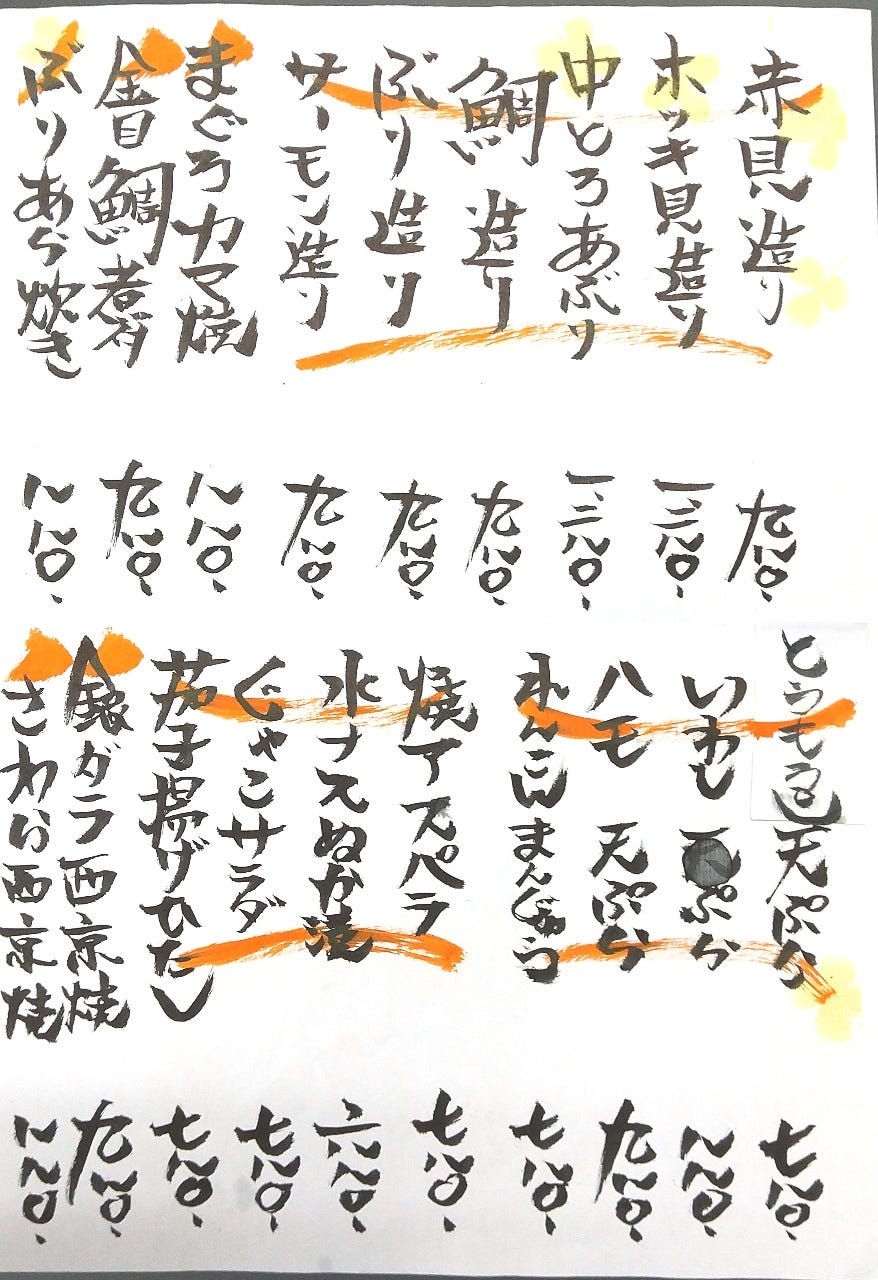 赤貝造り
ホッキ貝造り
中とろあぶり
鯛造り
ぶり造り
サーモン造り
まぐろカマ焼
金目鯛煮付
ぶりあら炊き
九八〇、
一、三八〇、
九八〇、
九八〇、
九八〇、
八八〇、
九八〇、
八八〇、
とうもろこし天ぷら
いわし天ぷら
ハモ天ぷら
れんこんまんじゅう
焼アスパラ
水ナスぬか漬
じゃこサラダ
茄子揚げひたし
銀ダラ西京焼
さわら西京焼
七八〇、
八八〇、
九八〇、
七八〇、
七八〇、
六八〇、
七八〇、
七八〇、
九八〇、
八八〇、